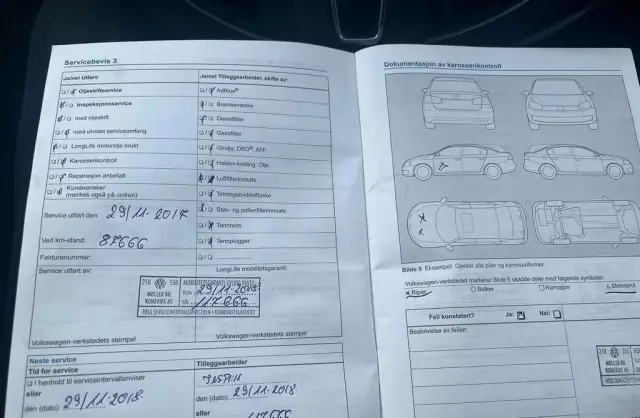 Servicebevis 3
Ja/nei Utført:
Ja/nei Tilleggsarbeider, skifte av:
Oljeskiftservice
AdBlue®
Inspeksjonsservice
Bremsevæske
med oljeskift
Dieselfilter
med utvidet serviceomfang
Gassfilter
LongLife motorolje brukt
Girolje, DSG®, ATF
Karosserikontroll
Haldex-kobling: Olje
Reparasjon anbefalt
Luftfilterinnsats
Kundeønske/
(merkes også på ordren)
Tetningsmiddelflaske
Støv- og pollenfilterinnsats
Service utført den 29/11-2017
Tannreim
Ved km-stand: 87666
Tennplugger
Fakturanummer:
Service utført av:
LongLife mobilitetsgaranti
218 550
MØLLER BIL
ROMERIKE AS
29/11-2018
117.666
Volkswagen-verkstedets stempel
Volkswagen-verkstedets stempel
Neste service
Tid for service
Tilleggsarbeider
I henhold til serviceintervallanviser
eller
den (dato): 29/11-2018
den (dato): 29/11-2018
eller
117666
Dokumentasjon av karosserikontroll
Bilde 5 Eksempel: Gjelder alle biler og karosseriformer.
Volkswagen-verkstedet markerer Bilde 5 skadde deler med følgende symboler:
x Riper
O Bulker
□ Korrosjon
△ Steinsprut
Feil konstatert?
Ja:
Nei:
Beskrivelse av feilen:
218 550
MØLLER BIL
ROMERIKE AS